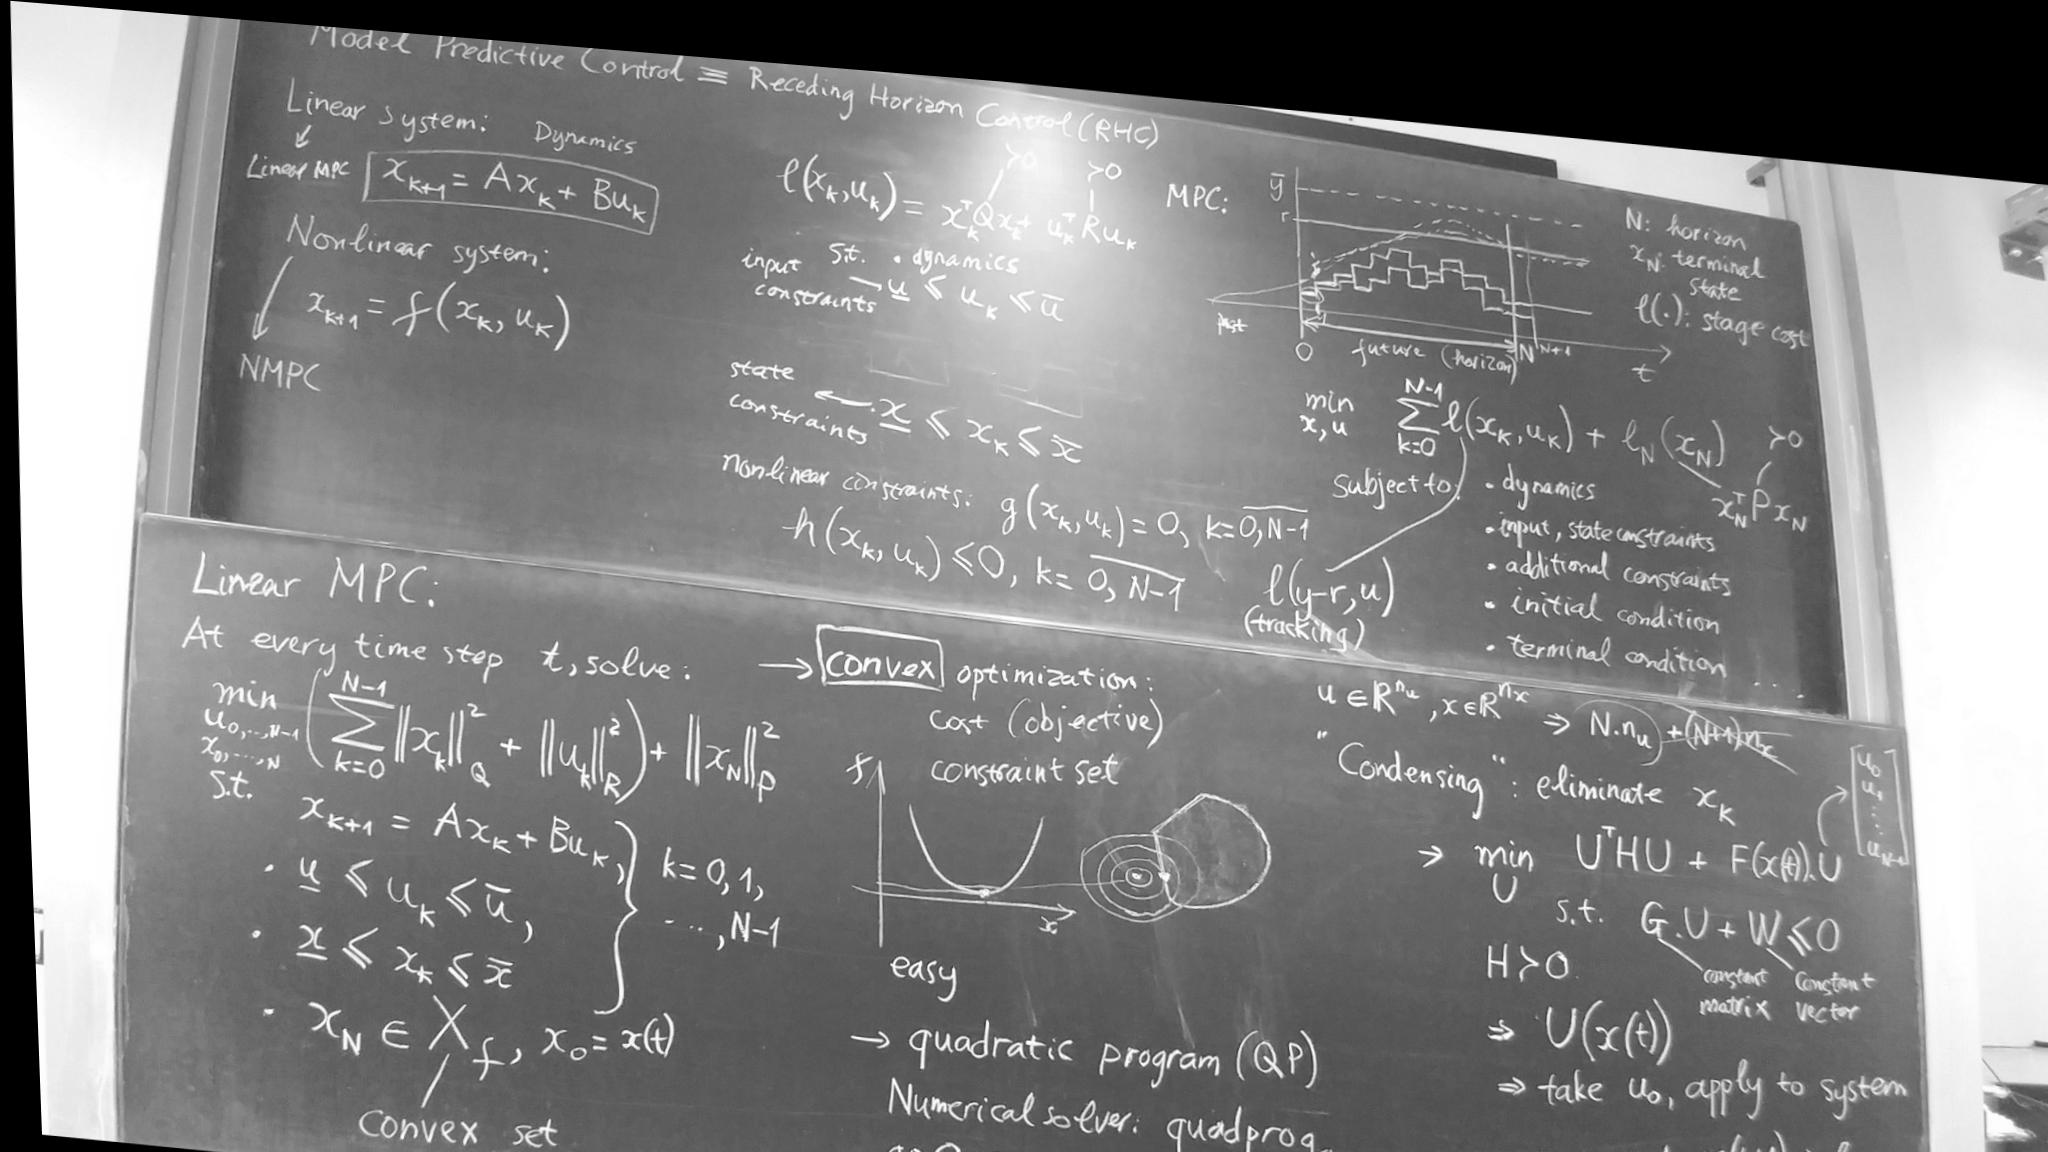 Model Predictive Control ≡ Receding Horizon Control (RHC)
Linear system: Dynamics
Linear MPC
x_{k+1} = Ax_k + Bu_k
Nonlinear system:
x_{k+1} = f(x_k, u_k)
NMPC
>0 >0
ℓ(x_k, u_k) = x_k^T Q x_k + u_k^T R u_k
s.t. • dynamics
input constraints
u̲ ≤ u_k ≤ ū
state constraints
x̲ ≤ x_k ≤ x̄
nonlinear constraints: g(x_k, u_k) = 0, k = \overline{0, N-1}
h(x_k, u_k) ≤ 0, k = \overline{0, N-1}
MPC:
ȳ
r
past
0 future (horizon) N N+1 t
N: horizon
x_N: terminal state
ℓ(.): stage cost
min_{x,u} ∑_{k=0}^{N-1} ℓ(x_k, u_k) + ℓ_N(x_N)
>0
x_N^T P x_N
subject to
• dynamics
• input, state constraints
• additional constraints
• initial condition
• terminal condition
....
ℓ(y-r, u)
(tracking)
Linear MPC:
At every time step t, solve:
min_{u_0,...,N-1 x_0,...,N} (∑_{k=0}^{N-1} ||x_k||_Q^2 + ||u_k||_R^2) + ||x_N||_P^2
s.t.
x_{k+1} = Ax_k + Bu_k,
• u̲ ≤ u_k ≤ ū,
• x̲ ≤ x_k ≤ x̄
k = 0, 1,
..., N-1
• x_N ∈ X_f, x_0 = x(t)
convex set
→ convex optimization:
cost (objective)
constraint set
f
x
easy
→ quadratic program (QP)
Numerical solver: quadprog,
u ∈ R^{n_u}, x ∈ R^{n_x} ⇒ N.n_u + (N+1)n_x
"Condensing": eliminate x_k
→ min_U U^T H U + F(x(t)).U
[u_0 u_1 ⋮ u_{N-1}]
s.t. G.U + W ≤ 0
H > 0
constant matrix
constant vector
⇒ U(x(t))
⇒ take u_0, apply to system